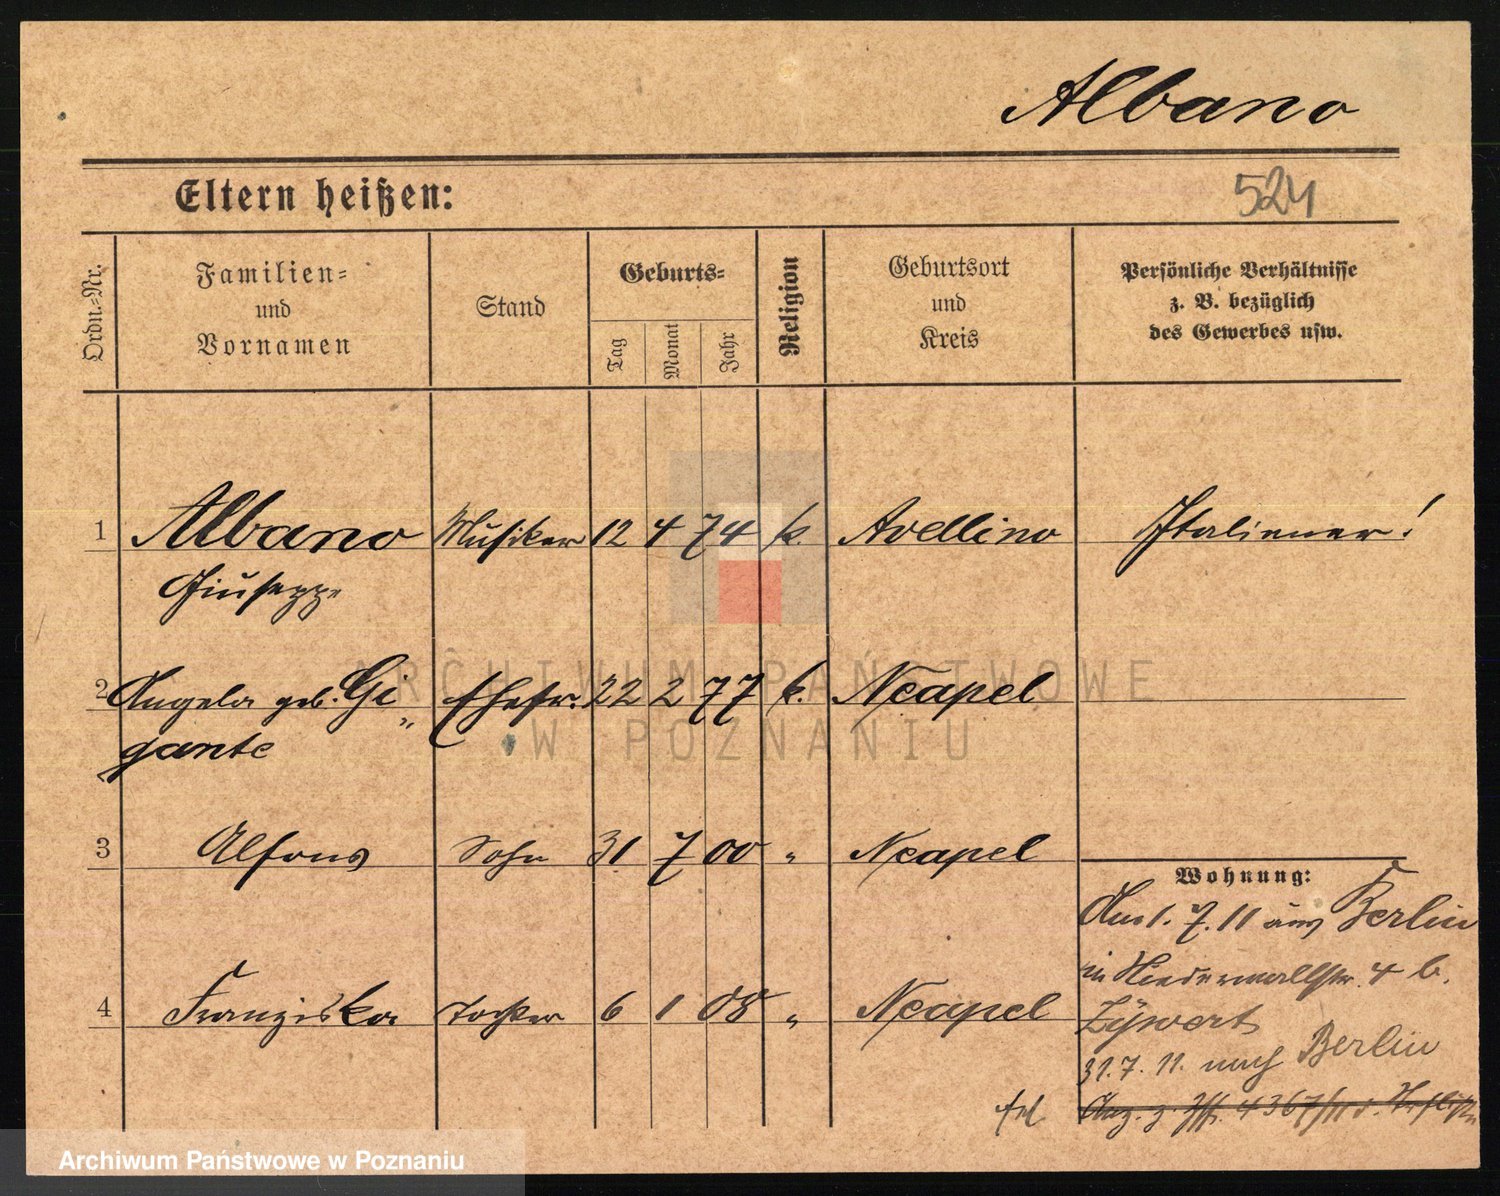 Albano
Eltern heißen:
524
Ordn.-Nr.
Familien-
und
Vornamen
Stand
Geburts-
Tag
Monat
Jahr
Religion
Geburtsort
und
Kreis
Persönliche Verhältnisse
z. B. bezüglich
des Gewerbes usw.
1 Albano Musiker 12 4 74 k. Avellino Italiener!
Giuseppe
2 Angela geb. Gi„ Ehefr. 22 2 77 k. Neapel
gante
3 Alfons Sohn 31 7 00 „ Neapel
Wohnung:
Am 1. 7. 11 aus Berlin
in Niederwallstr. 4 b.
4 Franziska Tochter 6 1 08 „ Neapel
Zywert
31. 7. 11. nach Berlin
4367/11
ARCHIWUM PAŃSTWOWE
W POZNANIU
Archiwum Państwowe w Poznaniu